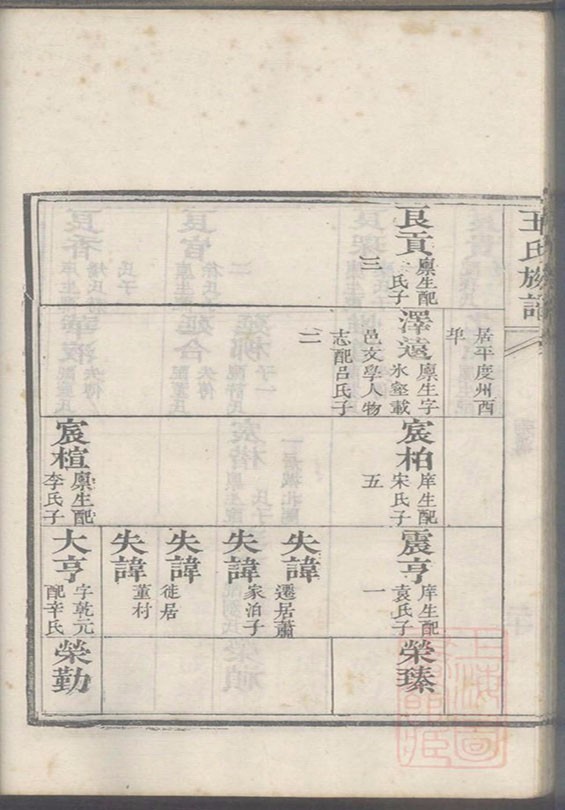 王氏族譜
居平度州西
埠
良貢
廪生配
氏子
三
澤遠
廪生字
氷壑載
邑文學人物
志配呂氏子
二
宸柏
庠生配
宋氏子
五
宸楦
廪生配
李氏子
震亨
庠生配
袁氏子
一
失諱
遷居蕭
家泊子
失諱
失諱
徙居
董村
失諱
大亨
字乾元
配辛氏
榮臻
榮勤